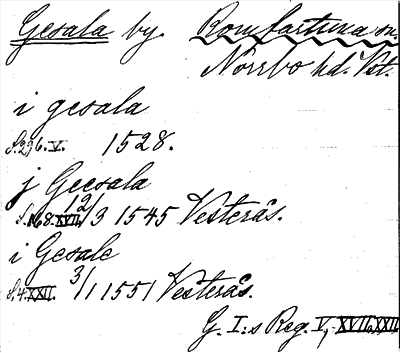 Gesala by. Romfartuna sn.
Norrbo hd. Vstm.
i gesala
S. 296. V. 1528.
j Geesala
S. 168. XVII. 12/3 1545 Vesterås.
i Gesale
S. 4. XXII. 3/1 1551 Vesterås.
G. I:s Reg. V, XVII, XXII